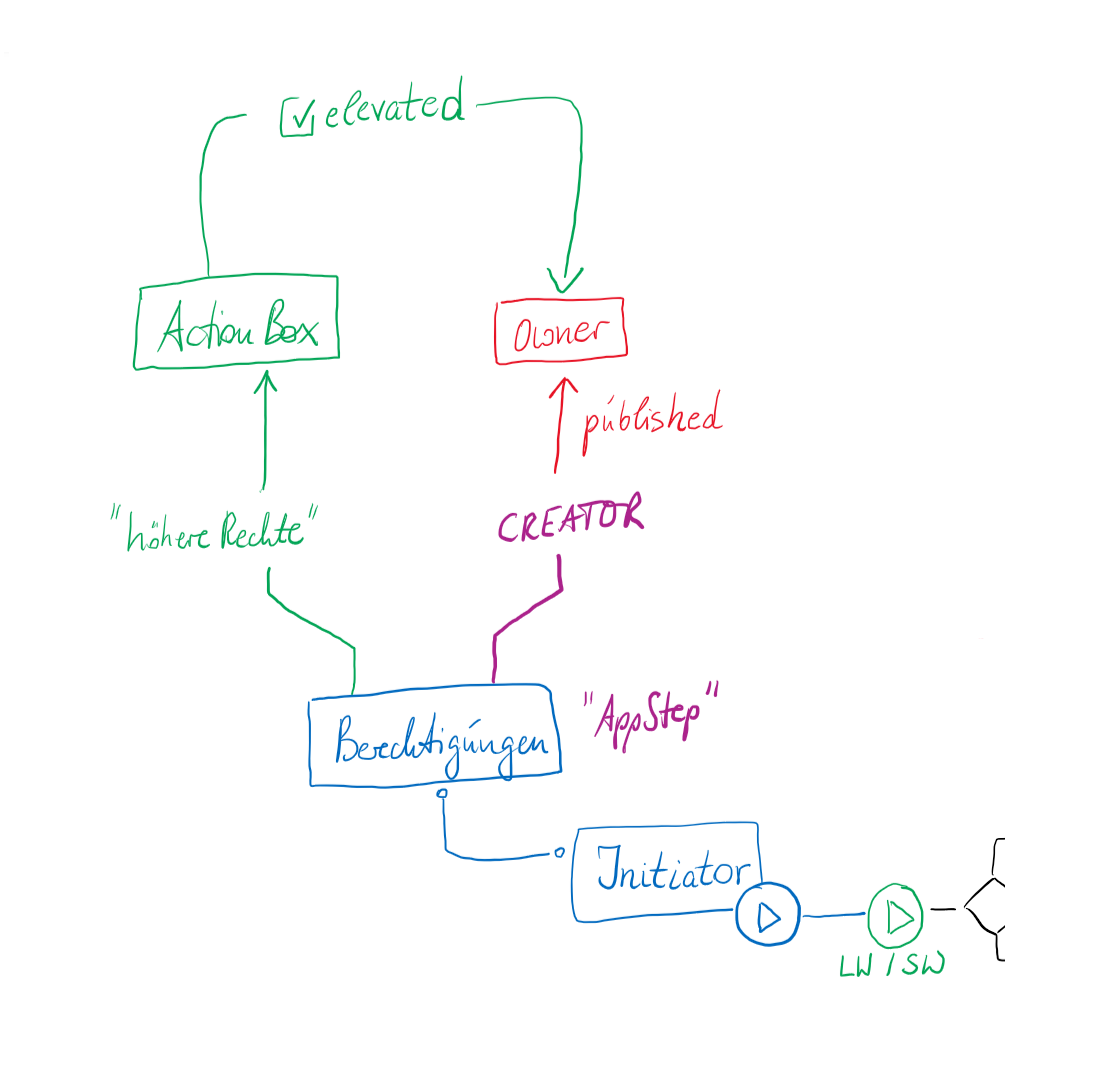 elevated
Action Box
Owner
published
"höhere Rechte"
CREATOR
Berechtigungen
"AppStep"
Initiator
LW / SW